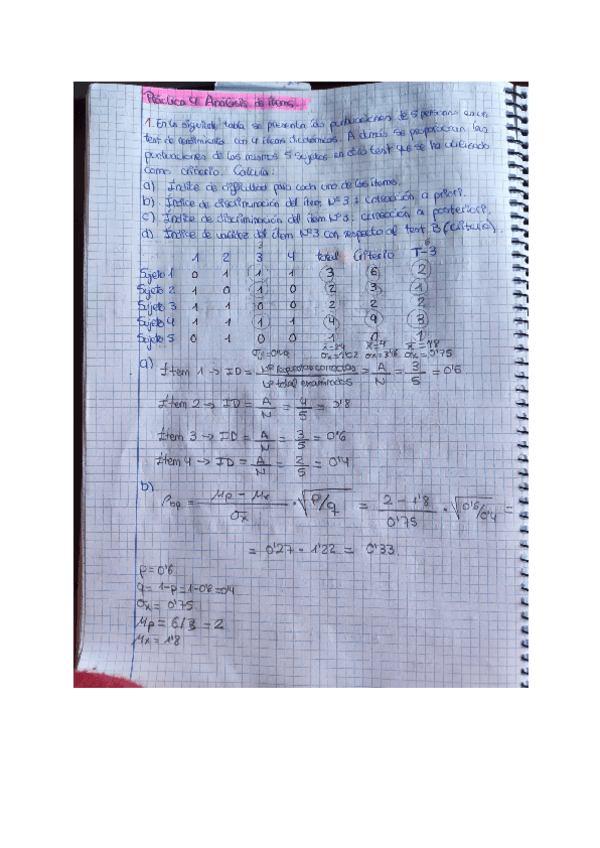 Práctica 4. Análisis de ítems.
1. En la siguiente tabla se presenta las puntuaciones de 5 personas en un
test de rendimiento con 4 ítems dicotómicos. Además se proporcionan las
puntuaciones de los mismos 5 sujetos en otro test que se ha utilizado
como criterio. Calcula:
a) Índice de dificultad para cada uno de los ítems.
b) Índice de discriminación del ítem Nº3: corrección a priori.
c) Índice de discriminación del ítem Nº3: corrección a posteriori.
d) Índice de validez del ítem Nº3 con respecto al test B (criterio).
1 2 3 4 total Criterio T-3
Sujeto 1 0 1 1 1 3 6 2
Sujeto 2 1 0 1 0 2 3 1
Sujeto 3 1 1 0 0 2 2 2
Sujeto 4 1 1 1 1 4 9 3
Sujeto 5 0 1 0 0 1 1
x̄=4 x̄=1'8
σx=0'75
a) Ítem 1 → ID = Nº respuestas correctas / Nº total examinados = A/N = 3/5 = 0'6
Ítem 2 → ID = A/N = 4/5 = 0'8
Ítem 3 → ID = A/N = 3/5 = 0'6
Ítem 4 → ID = A/N = 2/5 = 0'4
b) ρbp = μp - μx / σx · √p/q = 2 - 1'8 / 0'75 · √0'6/0'4 =
= 0'27 · 1'22 = 0'33
p = 0'6
q = 1-p = 1-0'6 = 0'4
σx = 0'75
μp = 6/3 = 2
μx = 1'8